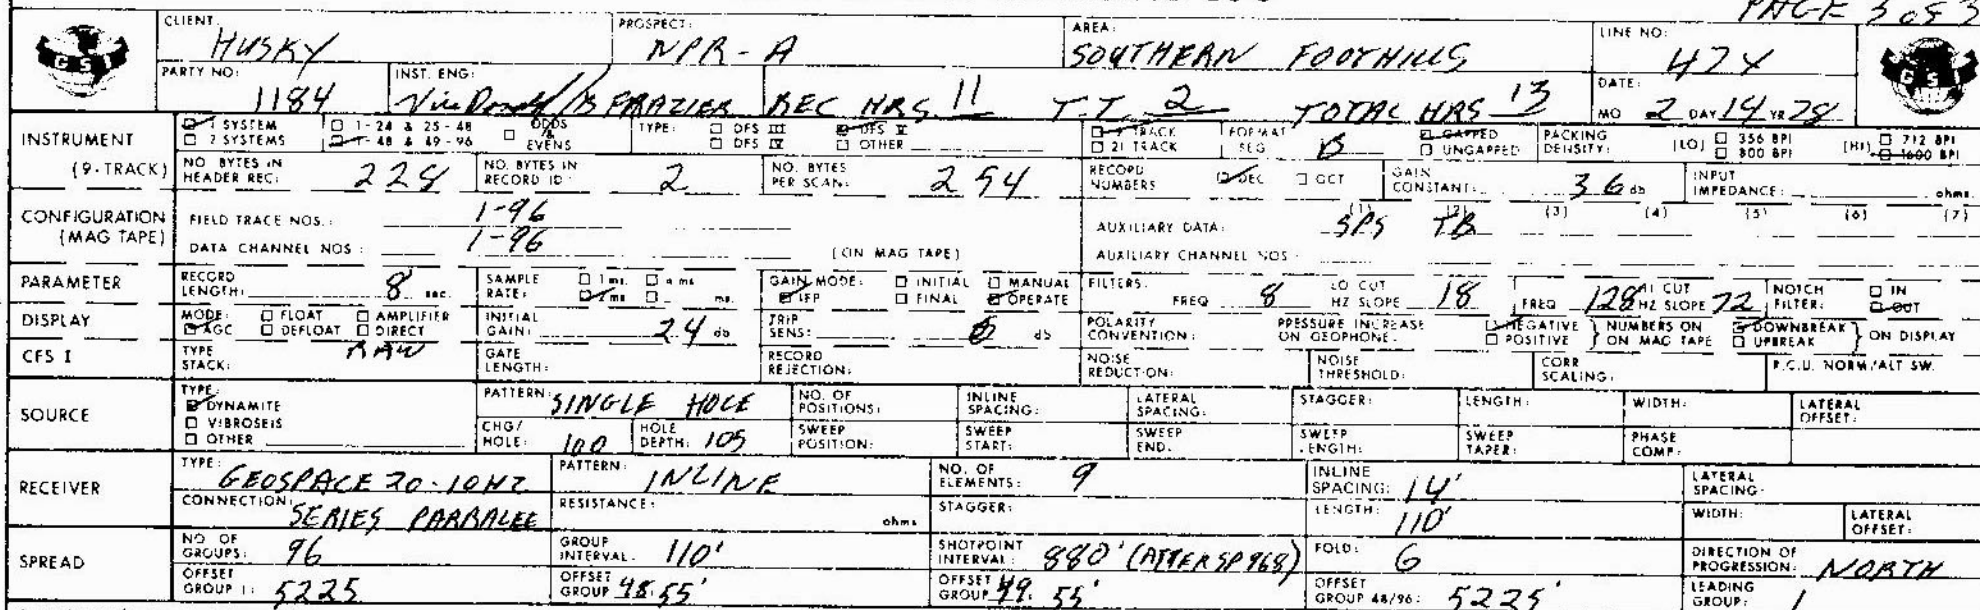 PAGE 3 of 3
CLIENT: HUSKY PROSPECT: NPR-A AREA: SOUTHERN FOOTHILLS LINE NO: 47X
GSI GSI
PARTY NO: 1184 INST. ENG: B FRAZIER REC HRS 11 T.T. 2 TOTAL HRS 13 DATE: MO 2 DAY 14 YR 78
INSTRUMENT (9-TRACK) 1 SYSTEM 1-24 & 25-48 ODDS & EVENS TYPE: DFS III DFS V 9 TRACK FORMAT SEG B GAPPED PACKING DENSITY: (LO) 356 BPI (HI) 712 BPI
2 SYSTEMS 1-48 & 49-96 DFS IV OTHER 21 TRACK UNGAPPED 800 BPI 1600 BPI
NO BYTES IN HEADER REC: 228 NO. BYTES IN RECORD ID: 2 NO. BYTES PER SCAN: 294 RECORD NUMBERS DEC OCT GAIN CONSTANT: 36 db INPUT IMPEDANCE: ohms.
CONFIGURATION (MAG TAPE) FIELD TRACE NOS.: 1-96 AUXILIARY DATA: (1) SPS (2) TB (3) (4) (5) (6) (7)
DATA CHANNEL NOS: 1-96 (ON MAG TAPE) AUXILIARY CHANNEL NOS
PARAMETER RECORD LENGTH: 8 sec. SAMPLE RATE: 1 ms. 4 ms 2 ms ms. GAIN MODE: INITIAL MANUAL IFP FINAL OPERATE FILTERS: FREQ 8 LO CUT HZ SLOPE 18 FREQ 128 HI CUT HZ SLOPE 72 NOTCH FILTER: IN OUT
DISPLAY MODE: FLOAT AMPLIFIER AGC DEFLOAT DIRECT INITIAL GAIN: 24 db TRIP SENS: 6 db POLARITY CONVENTION: PRESSURE INCREASE ON GEOPHONE. NEGATIVE POSITIVE } NUMBERS ON MAG TAPE DOWNBREAK UPBREAK } ON DISPLAY
CFS I TYPE STACK: RAW GATE LENGTH: RECORD REJECTION: NOISE REDUCTION: NOISE THRESHOLD: CORR SCALING: F.C.U. NORM/ALT SW.
SOURCE TYPE: DYNAMITE VIBROSEIS OTHER PATTERN: SINGLE HOLE NO. OF POSITIONS: INLINE SPACING: LATERAL SPACING: STAGGER: LENGTH: WIDTH: LATERAL OFFSET:
CHG/HOLE: 100 HOLE DEPTH: 105 SWEEP POSITION: SWEEP START: SWEEP END. SWEEP LENGTH: SWEEP TAPER: PHASE COMP:
RECEIVER TYPE: GEOSPACE 20-10HZ PATTERN: INLINE NO. OF ELEMENTS: 9 INLINE SPACING: 14' LATERAL SPACING:
CONNECTION: SERIES PARRALEE RESISTANCE: ohms STAGGER: LENGTH: 110' WIDTH: LATERAL OFFSET:
SPREAD NO OF GROUPS: 96 GROUP INTERVAL: 110' SHOTPOINT INTERVAL: 880' (AFTER SP 968) FOLD: 6 DIRECTION OF PROGRESSION: NORTH
OFFSET GROUP 1: 5225 OFFSET GROUP 48: 55' OFFSET GROUP 49: 55' OFFSET GROUP 48/96: 5225' LEADING GROUP: 1